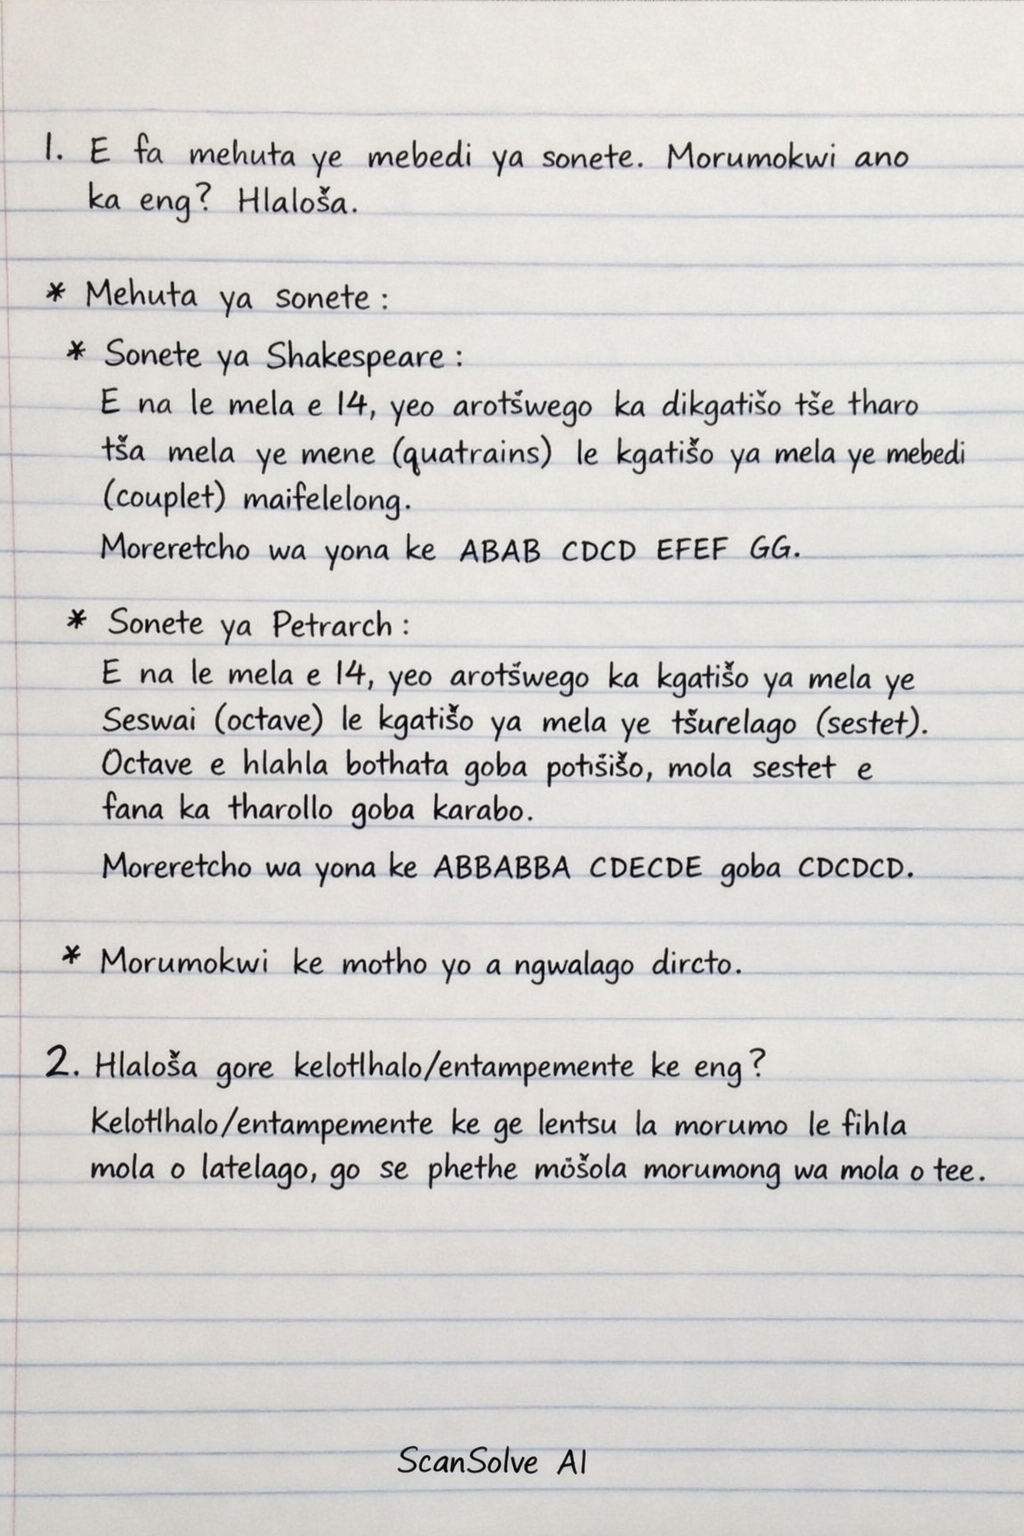 1. E fa mehuta ye mebedi ya sonete. Morumokwi ano
ka eng? Hlaloša.
* Mehuta ya sonete:
* Sonete ya Shakespeare:
E na le mela e 14, yeo arotšwego ka dikgatišo tše tharo
tša mela ye mene (quatrains) le kgatišo ya mela ye mebedi
(couplet) maifelelong.
Moreretcho wa yona ke ABAB CDCD EFEF GG.
* Sonete ya Petrarch:
E na le mela e 14, yeo arotšwego ka kgatišo ya mela ye
Seswai (octave) le kgatišo ya mela ye tšurelago (sestet).
Octave e hlahla bothata goba potšišo, mola sestet e
fana ka tharollo goba karabo.
Moreretcho wa yona ke ABBABBA CDECDE goba CDCDCD.
* Morumokwi ke motho yo a ngwalago dircto.
2. Hlaloša gore kelotlhalo/entampemente ke eng?
Kelotlhalo/entampemente ke ge lentsu la morumo le fihla
mola o latelago, go se phethe möšola morumong wa mola o tee.
ScanSolve AI